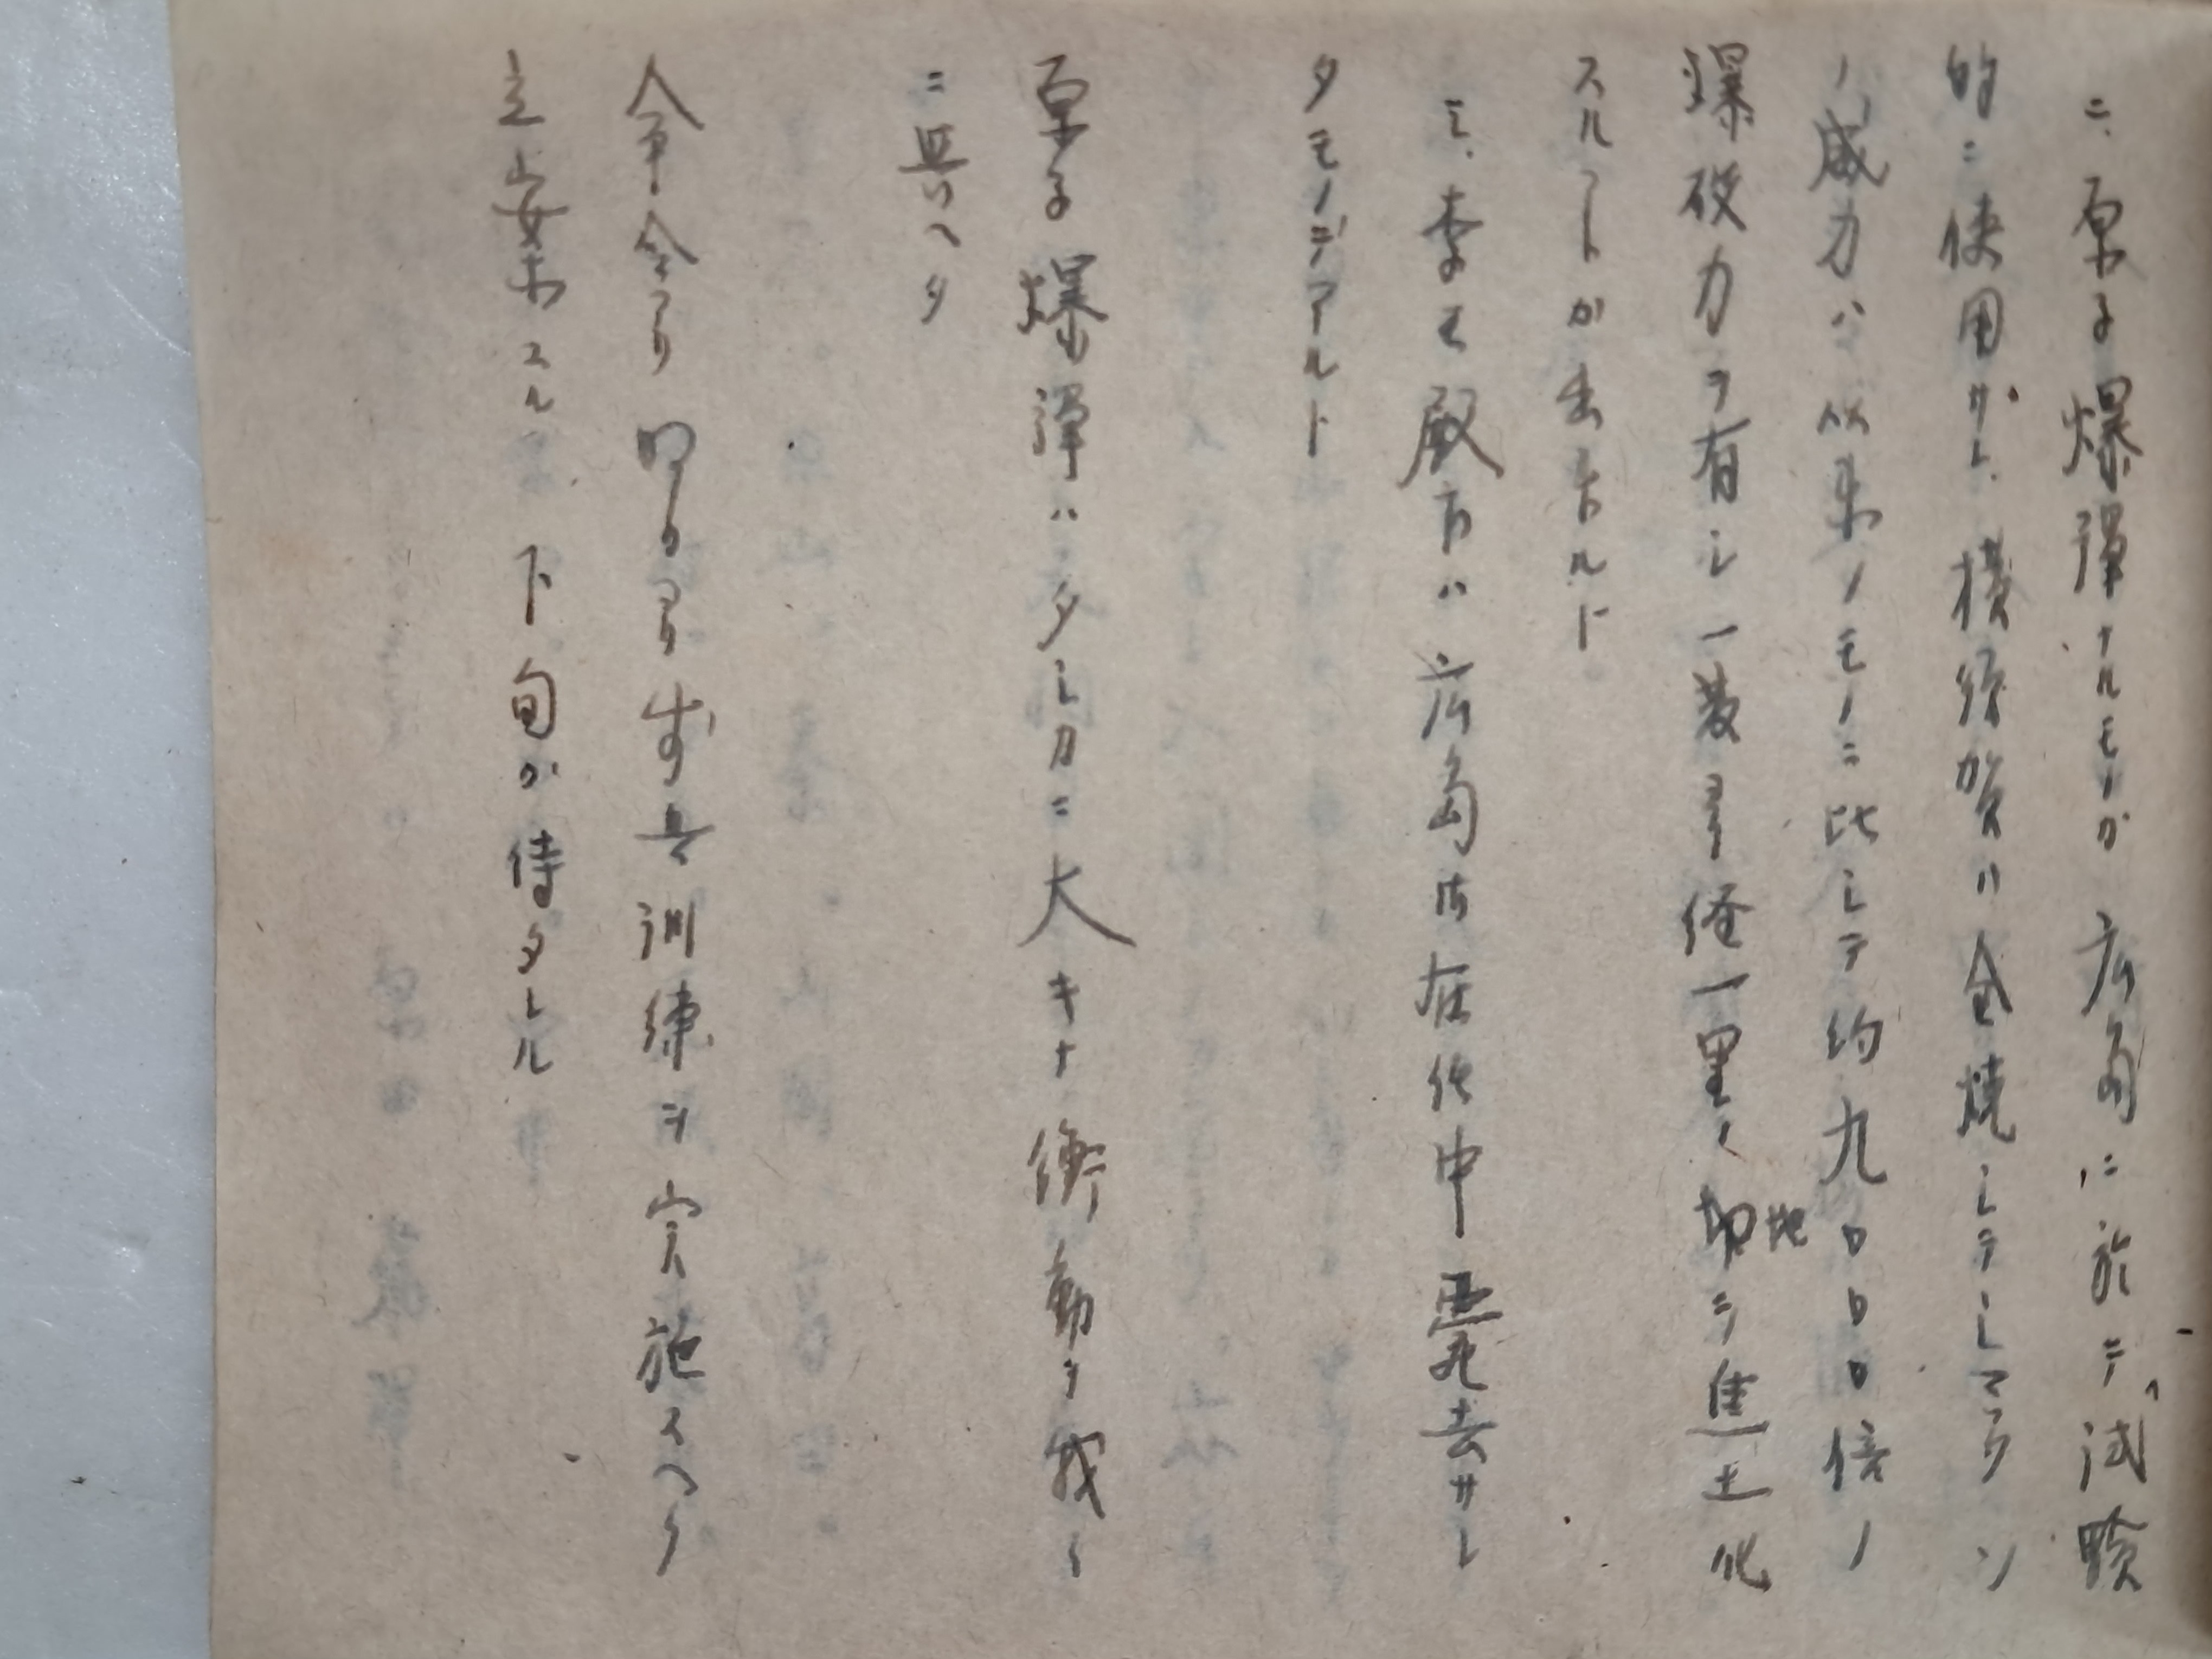 二、原子爆彈ナルモノガ広島ニ於テ試験
的ニ使用サレ、横須賀ハ全焼シテシマツタ
ノ威力ハ以来ノモノニ比シテ約九〇〇〇倍ノ
爆破力ヲ有シ一発ヨリ径一里ノ地ヲ焦土化
スルコトガ出来ルト
三、李王殿下ハ広島御在住中薨去サレ
タモノデアルト
原子爆彈ハタシカニ大キナ衝動ヲ我々
ニ與ヘタ
命令アリ明日ヨリ歩兵訓練ヲ実施スヘク
立案スル 下旬ガ待タレル